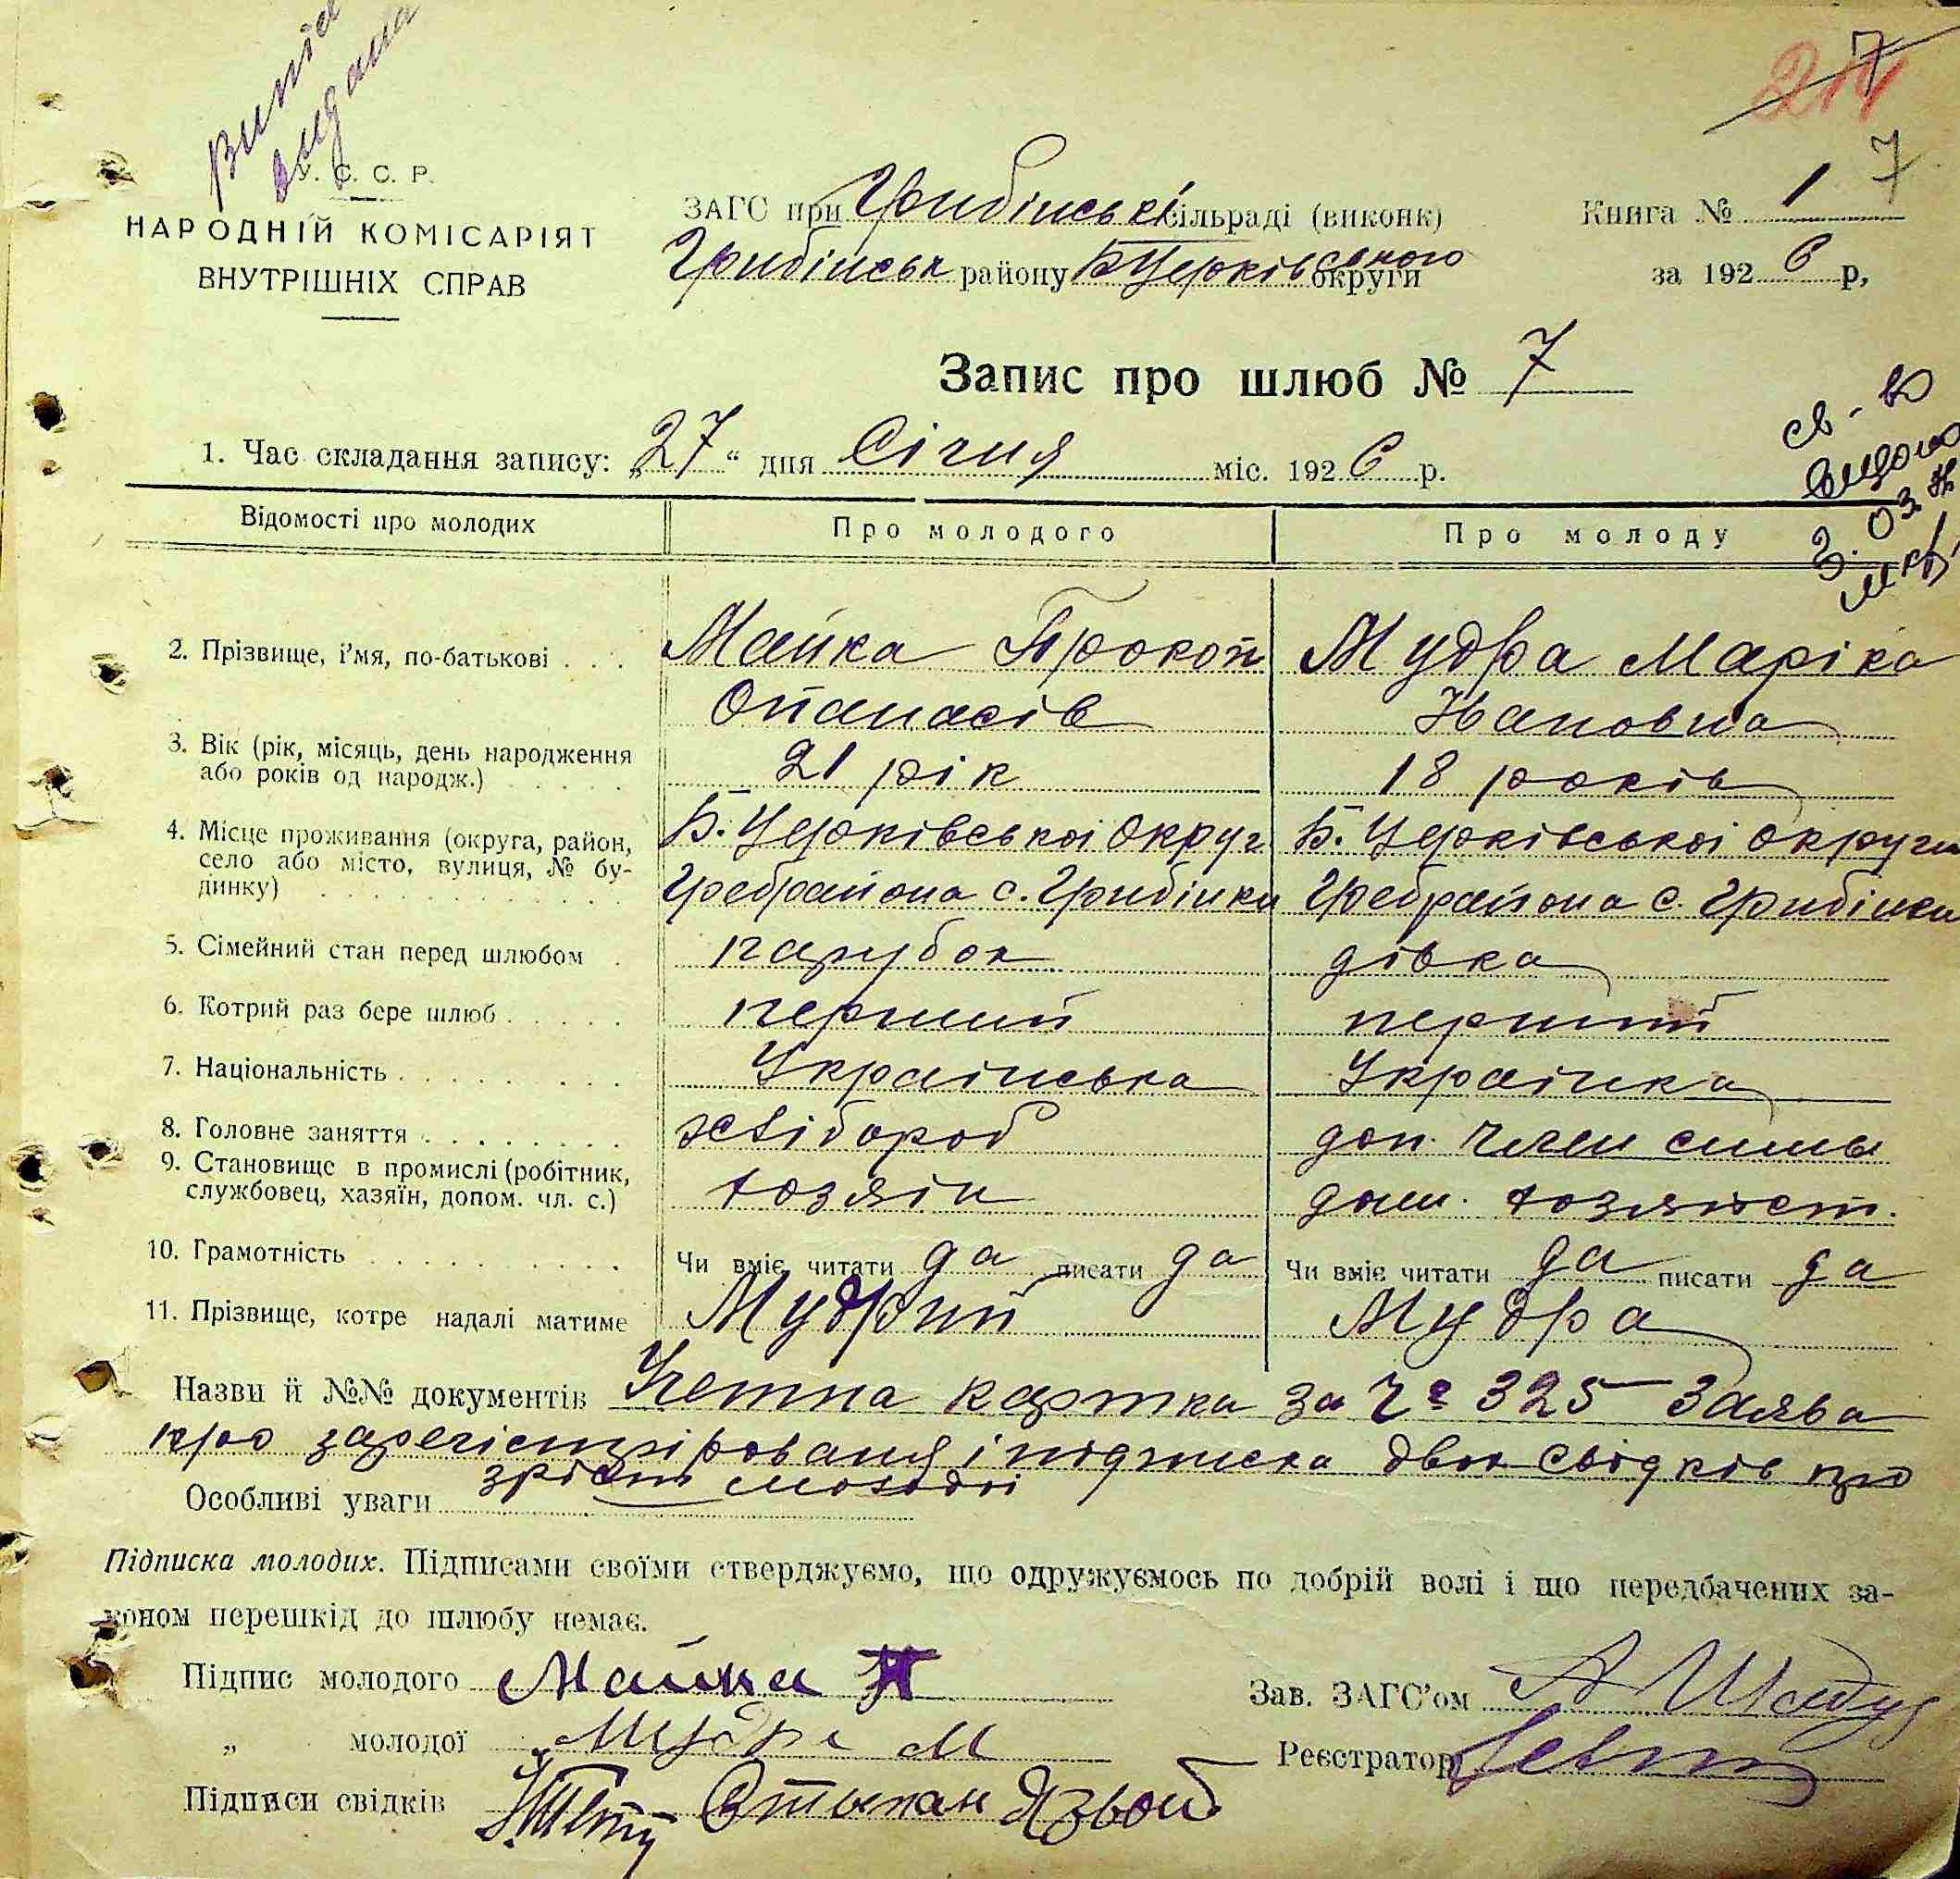 Випис
видана
7
7
У. С. С. Р.
НАРОДНІЙ КОМІСАРІЯТ
ВНУТРІШНІХ СПРАВ
ЗАГС при Грибінській сільраді (виконк)
Грибінськ району БЦерківського округи
Книга № 1
за 1926 р,
Запис про шлюб № 7
1. Час складання запису: „27“ дня Січня міс. 1926 р.
Відомості про молодих
Про молодого
Про молоду
2. Прізвище, і'мя, по-батькові . . .
Майка Прокоп
Опанасів
Мудра Маріка
Івановна
3. Вік (рік, місяць, день народження
або років од народж.) . . . . .
21 рік
18 років
4. Місце проживання (округа, район,
село або місто, вулиця, № бу-
динку) . . . . . . . . . .
Б. Церківської Округ
Гребрайона с. Грибінки
Б. Церківської округи
Гребрайона с. Грибінки
5. Сімейний стан перед шлюбом .
парубок
дівка
6. Котрий раз бере шлюб . . . . .
перший
перший
7. Національність . . . . . . . .
Українська
Українка
8. Головне заняття . . . . . . . .
хлібороб
доп. член симьі
9. Становище в промислі (робітник,
службовец, хазяїн, допом. чл. с.)
хозяін
дом. хозяйст.
10. Грамотність . . . . . . . . .
Чи вміє читати да писати да
Чи вміє читати да писати да
11. Прізвище, котре надалі матиме
Мудрий
Мудра
Назви й №№ документів Учетна картка за Чо 325 Заява
про зарегістрірованя і підписка двох свідків про
зріст молодої
Особливі уваги
Підписка молодих. Підписами своїми стверджуємо, що одружуємось по добрій волі і що передбачених за-
коном перешкід до шлюбу немає.
Підпис молодого Майка П
„ молодої Мудра М
Підписи свідків
Зав. ЗАГС'ом
Реєстратор